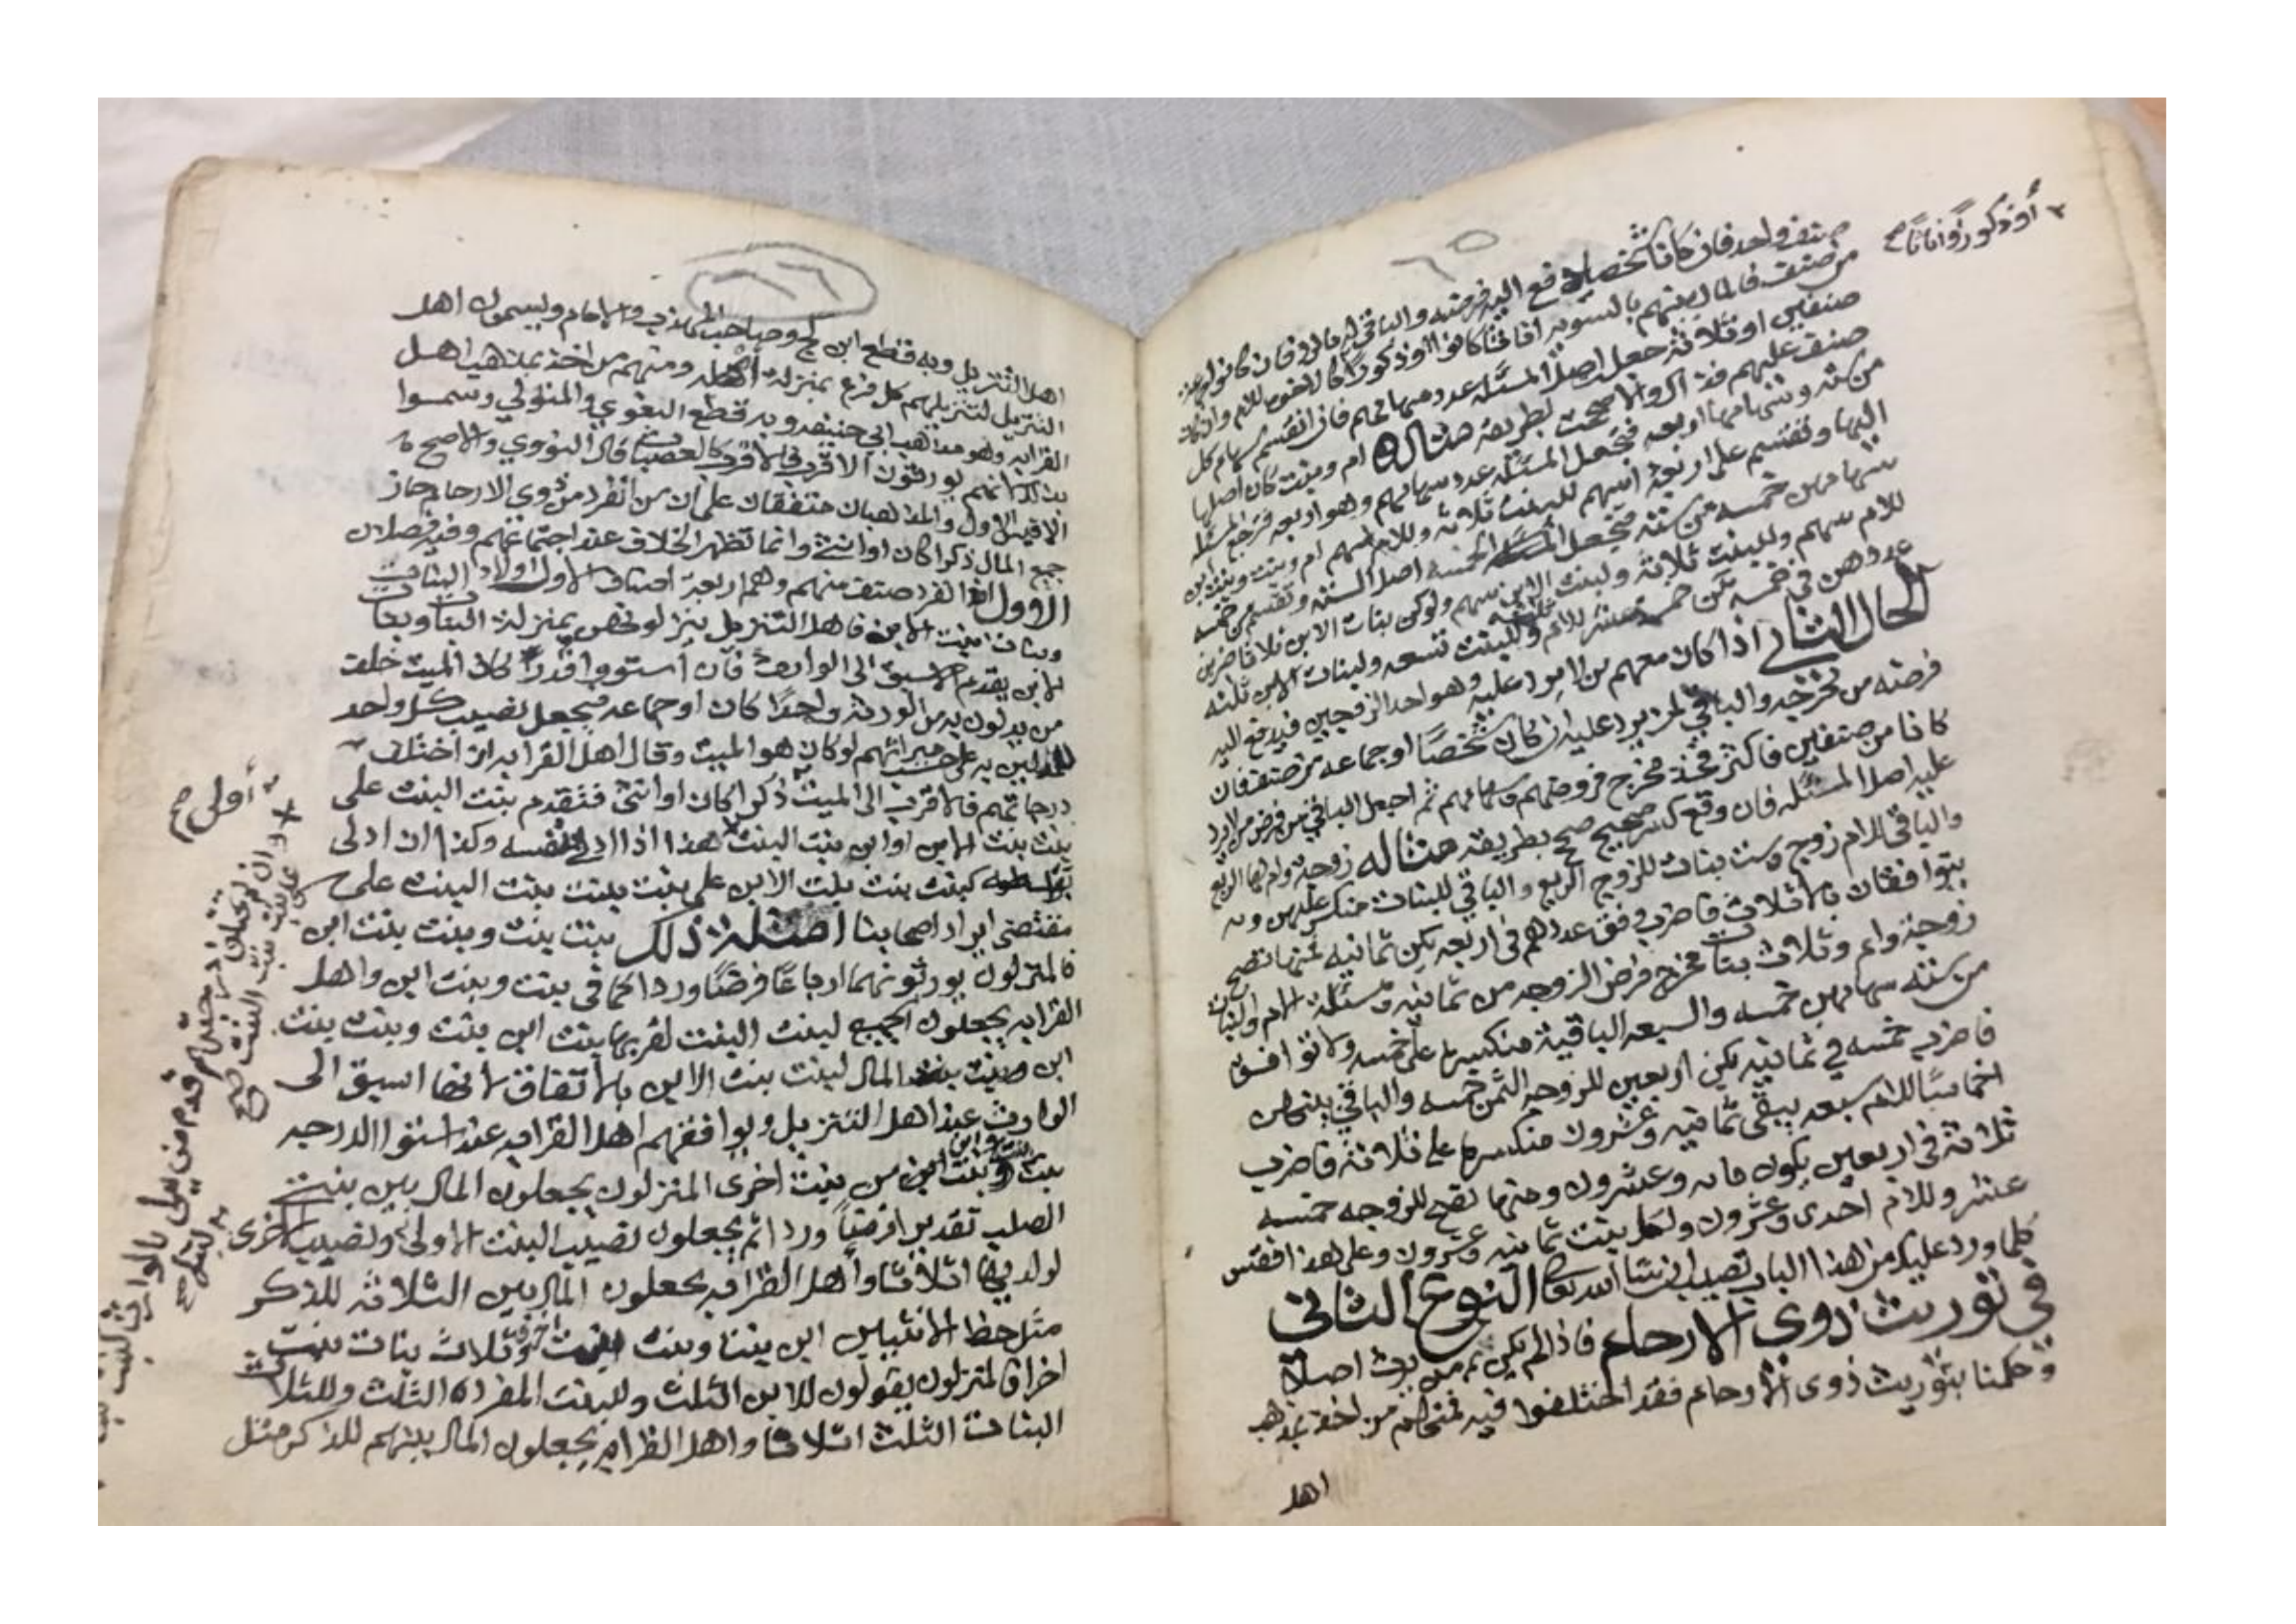 أو ذكورًا واناثا صح
٦٥
صنف واحد فان كان شخصا دفع اليه فرضه والباقي له بالرد فان كانوا جماعة
من صنف فالمال بينهم بالسوية اناثا كانوا او ذكورًا كالاخوة للام وان كانوا
صنفين او ثلاثة جعل اصل المسئلة عدد سهامهم فان انقسم سهام كل
صنف عليهم فذاك والا صححت بطريقه مثاله ام وبنت كان اصلها
من سته وسهامهما اربعه فتجعل المسئلة عدد سهامهم وهو اربعه فترجع المسئلة
اليها وتقسم على اربعة اسهم للبنت ثلاثة وللام سهم ام وبنت وبنت ابن
سهامهن خمسه من سته فتجعل الخمسه اصل المسئلة وتقسم من خمسه
للام سهم وللبنت ثلاثة ولبنت الابن سهم ولو كن بنات الابن ثلاثا ضربن
عددهن في خمسه تكن خمسة عشر للام ثلثه وللبنت تسعه ولبنات الابن ثلثه
الحال الثاني اذا كان معهم من لا يرد عليه وهو احد الزوجين فيدفع اليه
فرضه من مخرجه والباقي لمن يرد عليه ان كان شخصًا او جماعه من صنف فان
كانا من صنفين فاكثر فخذ مخرج فروضهم وسهامهم ثم اجعل الباقي من فرض من لا يرد
عليه اصل المسئله فان وقع كسر صحيح صح بطريقه مثاله زوجة وام لها الربع
والباقي للام زوج وست بنات للزوج الربع والباقي للبنات منكسر عليهن و
يتوافقان بالاثلاث فاضرب وفق عددهم في اربعه يكن ثمانيه فمنها تصح
زوجة وام وثلاث بنات مخرج فرض الزوجه من ثمانيه ومسئلة الام والبنات
من سته سهامهن خمسه والسبعه الباقية منكسره على خمسه ولا توافق
فاضرب خمسه في ثمانيه يكن اربعين للزوجه الثمن خمسه والباقي بينهن
اخماسًا للام سبعه يبقى ثمانيه وعشرون منكسره على ثلاثة فاضرب
ثلاثة في اربعين يكون مايه وعشرون ومنها تصح للزوجه خمسه
عشر وللام احدى وعشرون ولكل بنت ثمانيه وعشرون وعلى هذا فقس
كلما ورد عليك من هذا الباب تصيب ان شا الله تعالى النوع الثاني
في توريث ذوى الارحام فاذا لم يكن ثم من يرث اصلا
وحكمنا بتوريث ذوى الارحام فقد اختلفوا فيه فمنهم من اخذ بمذهب
اهل
٦٦
اهل التنزيل وبه قطع ابن كج وصاحب المهذب والامام ويسمون اهل
التنزيل لتنزيلهم كل فرع بمنزلة اصله ومنهم من اخذ بمذهب اهل
القرابه وهو مذهب ابي حنيفه وبه قطع البغوي والمتولي وسموا
بذلك لانهم يورثون الاقرب فالاقرب كالعصبات قال النووي والاصح
الاقيس الاول والمذهبان متفقان على ان من انفرد من ذوى الارحام حاز
جميع المال ذكرا كان او انثى وانما تظهر الخلاف عند اجتماعهم وفيه فصلان
الاوول اذا انفرد صنف منهم وهم اربعة اصناف الاول اولاد البنات
وبنات الابن فاهل التنزيل ينزلونهن بمنزلة البنات وبنات
الابن يقدم الاسبق الى الوارث فان استووا قدر كان الميت خلف
من يدلون به من الورثة واحدًا كان او جماعه فيجعل نصيب كل واحد
للمدلين به على حسب ميراثهم لو كان هو الميت وقال اهل القرابه ان اختلف
درجاتهم فالاقرب الى الميت ذكرا كان او انثى فتقدم بنت البنت على
بنت بنت الابن او ابن بنت البنت هذا اذا ادلى بنفسه وكذا ان ادلى
بواسطه كبنت بنت بنت الابن على بنت بنت بنت البنت على
مقتضى ايراد اصحابنا امثلة ذلك بنت بنت وبنت بنت ابن
فالمنزلون يورثونهما ارباعًا فرضًا وردا كما في بنت وبنت ابن واهل
القرابه يجعلون الجميع لبنت البنت لقربها بنت ابن بنت وبنت بنت
ابن المال لبنت بنت الابن بالاتفاق لانها اسبق الى
الوارث عند اهل التنزيل ويوافقهم اهل القرابه عند استوا الدرجه
بنت بنت وبنت وابن من بنت اخرى المنزلون يجعلون المال بين بنتي
الصلب تقديرا فرضًا وردا ثم يجعلون نصيب البنت الاولى ونصيب الاخرى
لولديها اثلاثا واهل القرابه يجعلون المال بين الثلاثة للذكر
مثل حظ الانثيين ابن بنت وبنت بنت اخرى وثلاث بنات بنت
اخرى فالمنزلون يقولون للابن الثلث وللبنت المفرده الثلث وللثلاث
البنات الثلث اثلاثا واهل القرابه يجعلون المال بينهم للذكر مثل
أولى صح